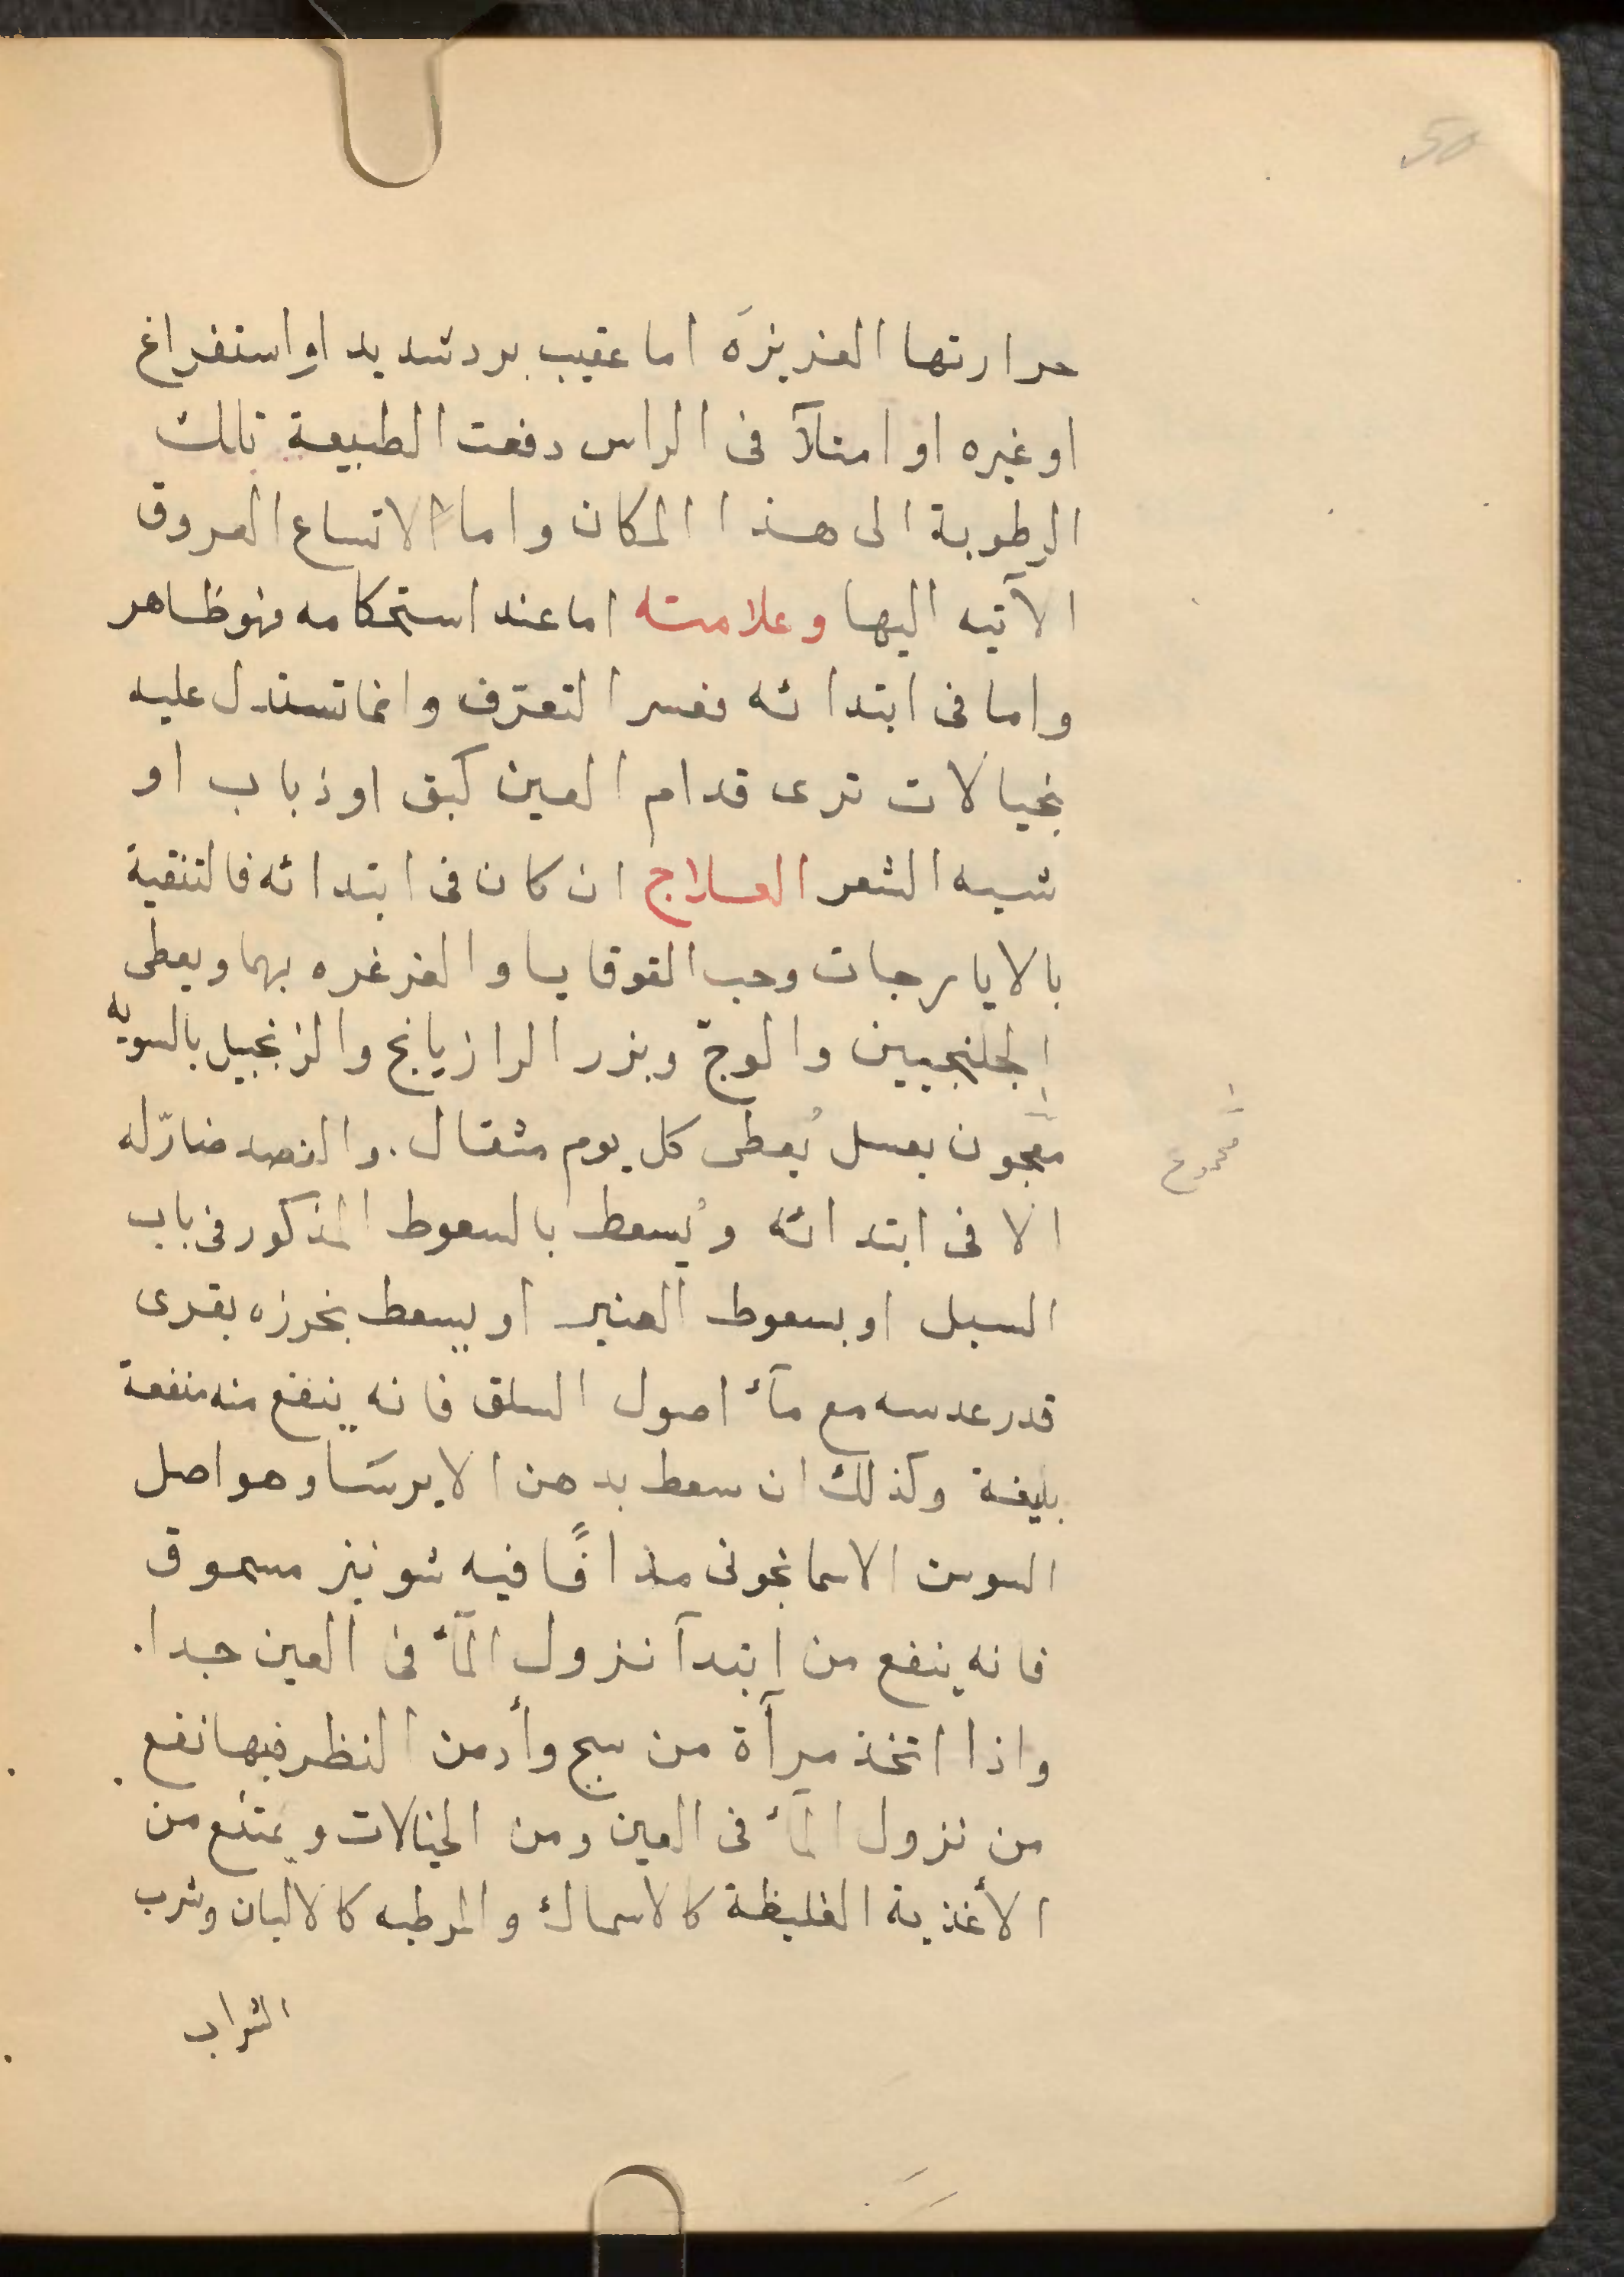 50
حرارتها الغزيزَه اما عقيب برد شديد او استفراغ
او غيره او امتلآ فى الراس دفعت الطبيعة تلك
الرطوبة الى هذا المكان واما الاتساع العروق
الآتيه اليها وعلامته اما عند استحكامه فهو ظاهر
واما فى ابتدائه فعسر التعرّف وانما تستدل عليه
بخيالات ترى قدام العين كبق او ذباب او
شبيه الشعر العلاج ان كان فى ابتدائه فالتنقية
بالايارجات وحب القوقايا والغرغره بهما ويعطى
الجلنجبين والوج وبزر الرازيانج والزنجبيل بالسويّه
معجون بعسل يُعطى كل يوم مثقال. والفصد ضارّ له
الا فى ابتدائه ويُسعط بالسعوط المذكور فى باب
السبل او بسعوط العنبر او يسعط بخرزه بقرى
قدر عدسه مع مآء اصول السلق فانه ينفع منه منفعة
بليغة وكذلك ان سعط بدهن الايرسَا وهو اصل
السوسن الاسمانجونى مذافًا فيه شونيز مسحوق
فانه ينفع من ابتدآ نزول المآء فى العين جدا.
واذا اتخذ مرآة من سبج وأدمن النظر فيها نفع
من نزول المآء فى العين ومن الخيالات ويمتنع من
الأغذية الغليظة كالاسماك والمرطبه كالالبان وشرب
الشراب
مجموع